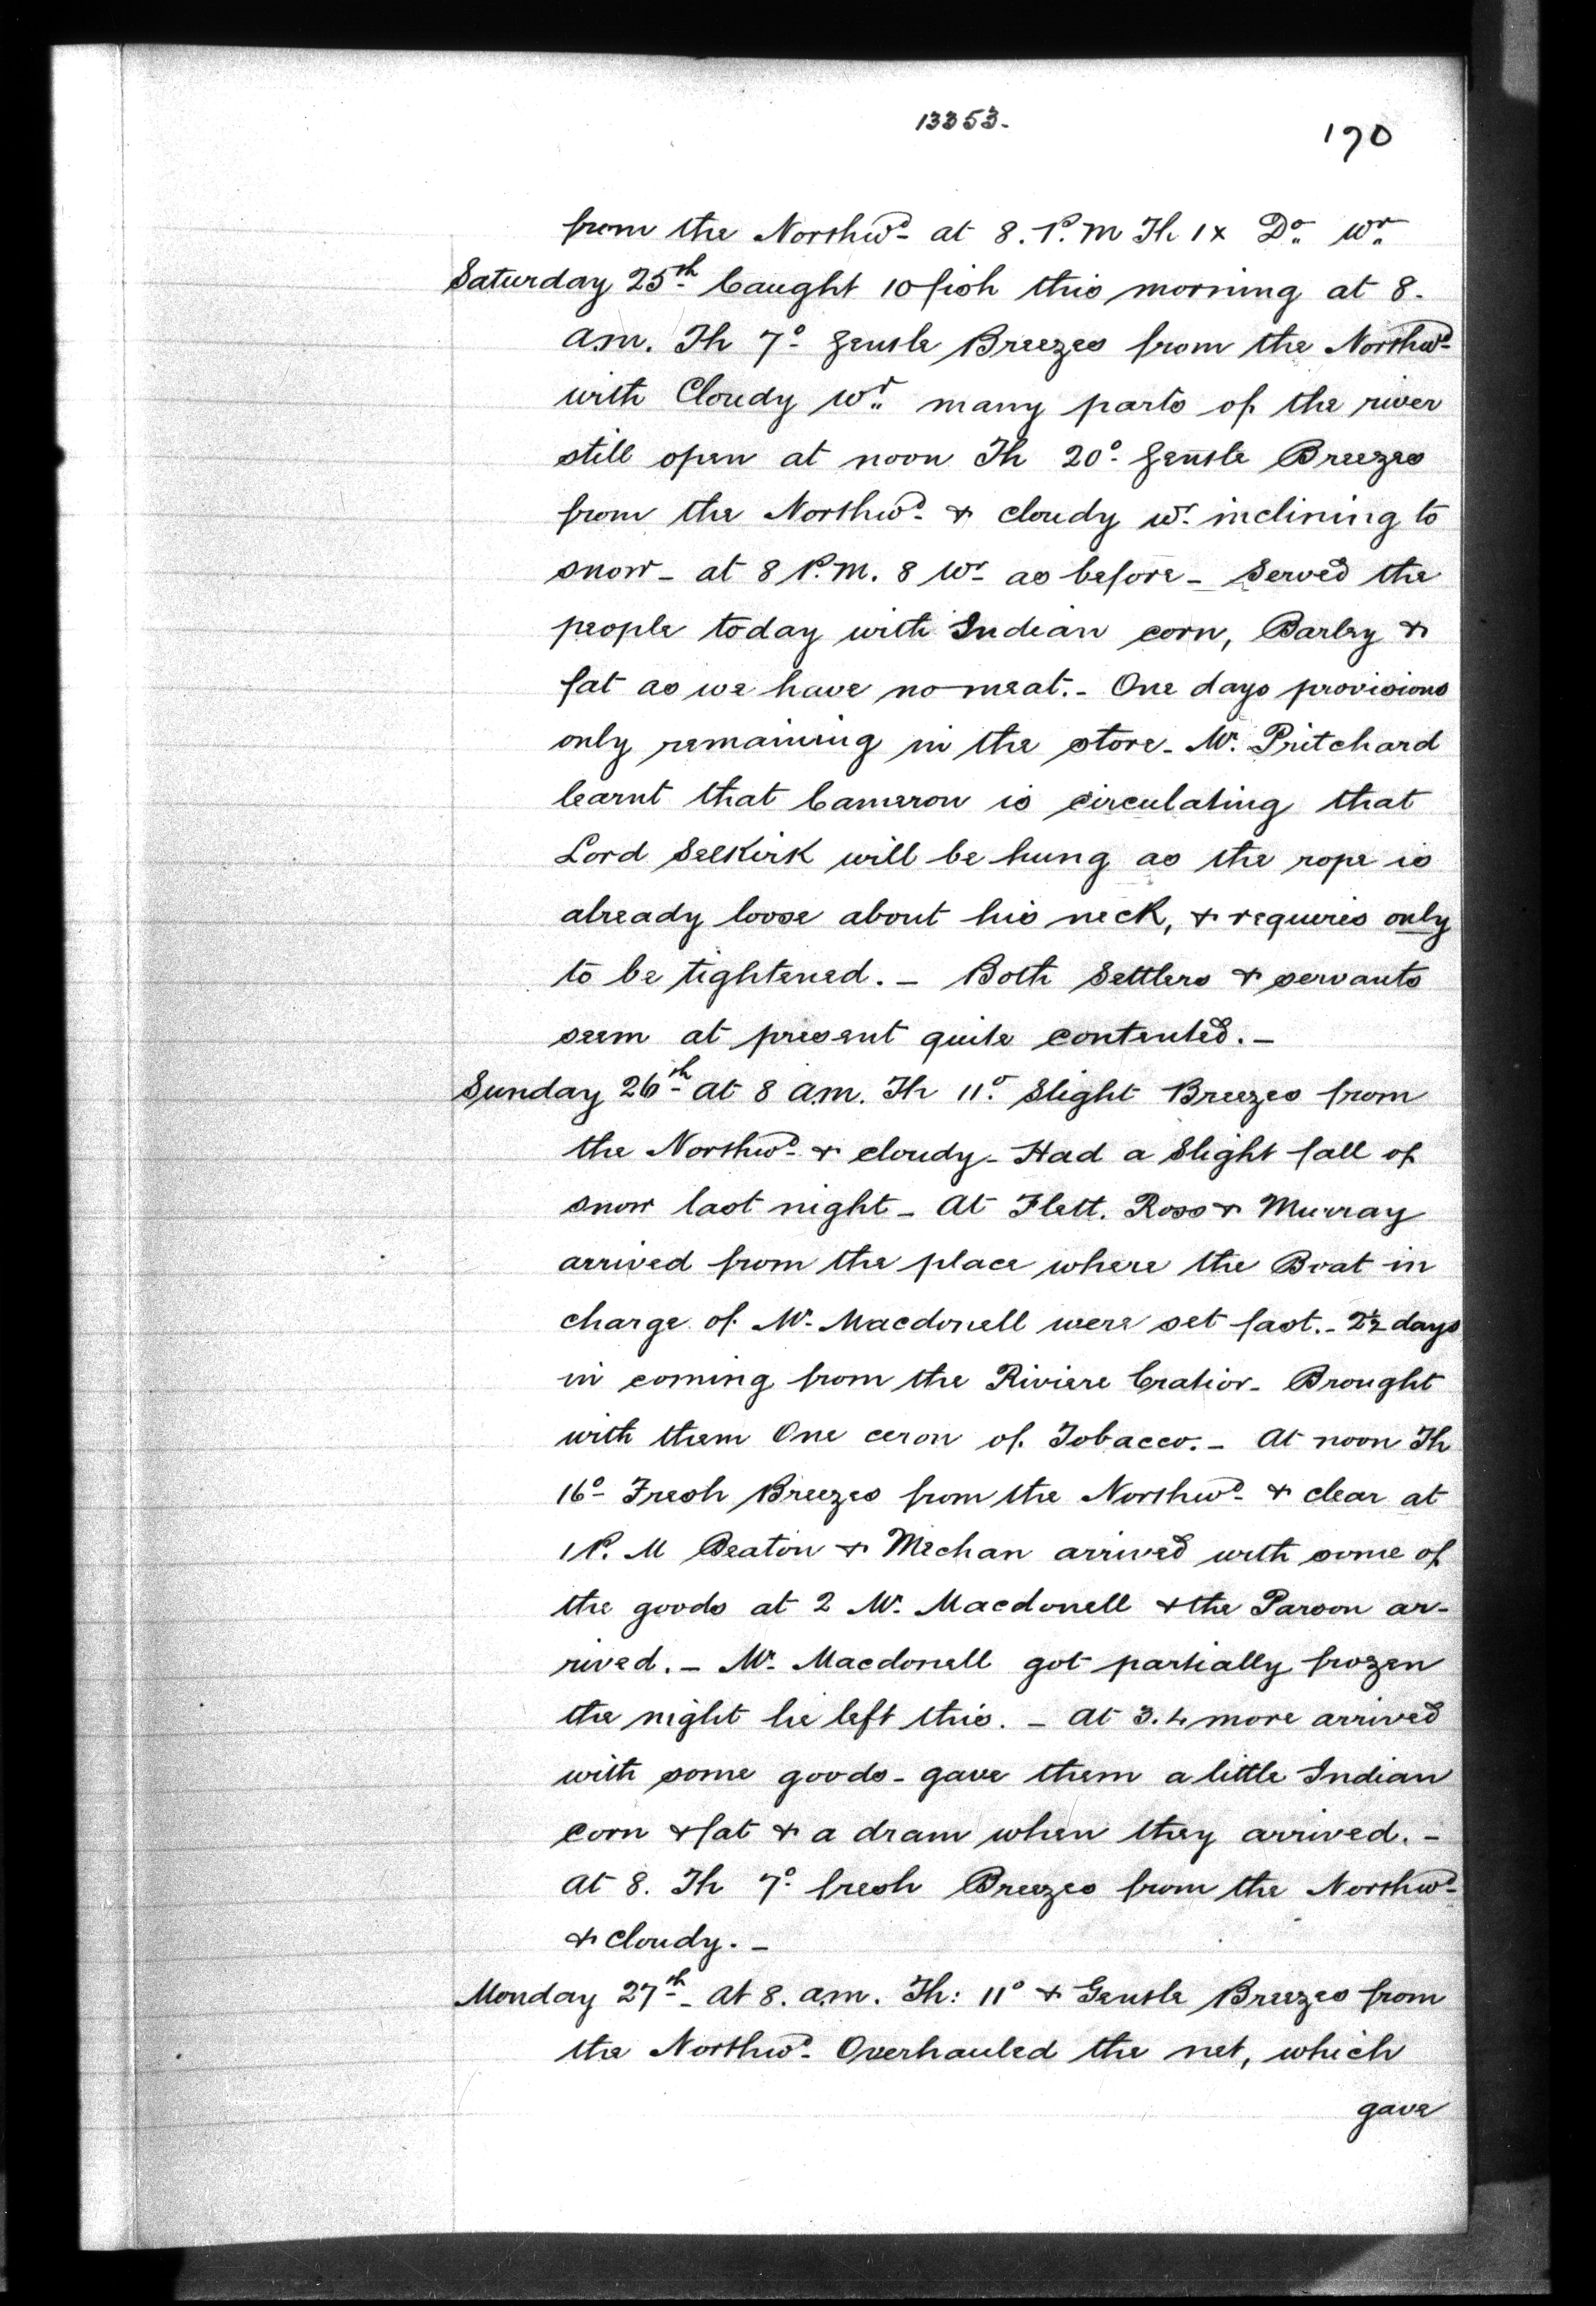 13353.
190
from the Northwd- at 8. P.M Th 1x Do.. Wr..
Saturday 25th- Caught 10 fish this morning at 8.
a.m. Th 7°- Gentle Breezes from the Northwd-
with Cloudy Wr.. many parts of the river
still open at noon Th 20°- Gentle Breezes
from the Northwd- & cloudy wr- inclining to
snow- at 8 P.M. 8 Wr- as before- Served the
people today with Indian corn, Barley &
fat as we have no meat.- One days provisions
only remaining in the store- Mr. Pritchard
learnt that Cameron is circulating that
Lord Selkirk will be hung as the rope is
already loose about his neck, & requires only
to be tightened. - Both Settlers & servants
seem at present quite contented. -
Sunday 26th- at 8 a.m. Th 11°. Slight Breezes from
the Northwd- & cloudy- Had a Slight fall of
snow last night- At Flett. Ross & Murray
arrived from the place where the Boat in
charge of Mr- Macdonell were set fast.- 2½ days
in coming from the Riviere Cratior- Brought
with them One ceron of Tobacco. - At noon Th
16°- Fresh Breezes from the Northwd- & clear at
1 P. M Beaton & Mechan arrived with some of
the goods at 2 Mr. Macdonell & the Parson ar-
rived. - Mr- Macdonell got partially frozen
the night he left this. - at 3. 4 more arrived
with some goods- gave them a little Indian
corn & fat & a dram when they arrived. -
at 8. Th 7°- fresh Breezes from the Northwd-
& cloudy. -
Monday 27th- at 8. a.m. Th: 11° & Gentle Breezes from
the Northwd- Overhauled the net, which
gave